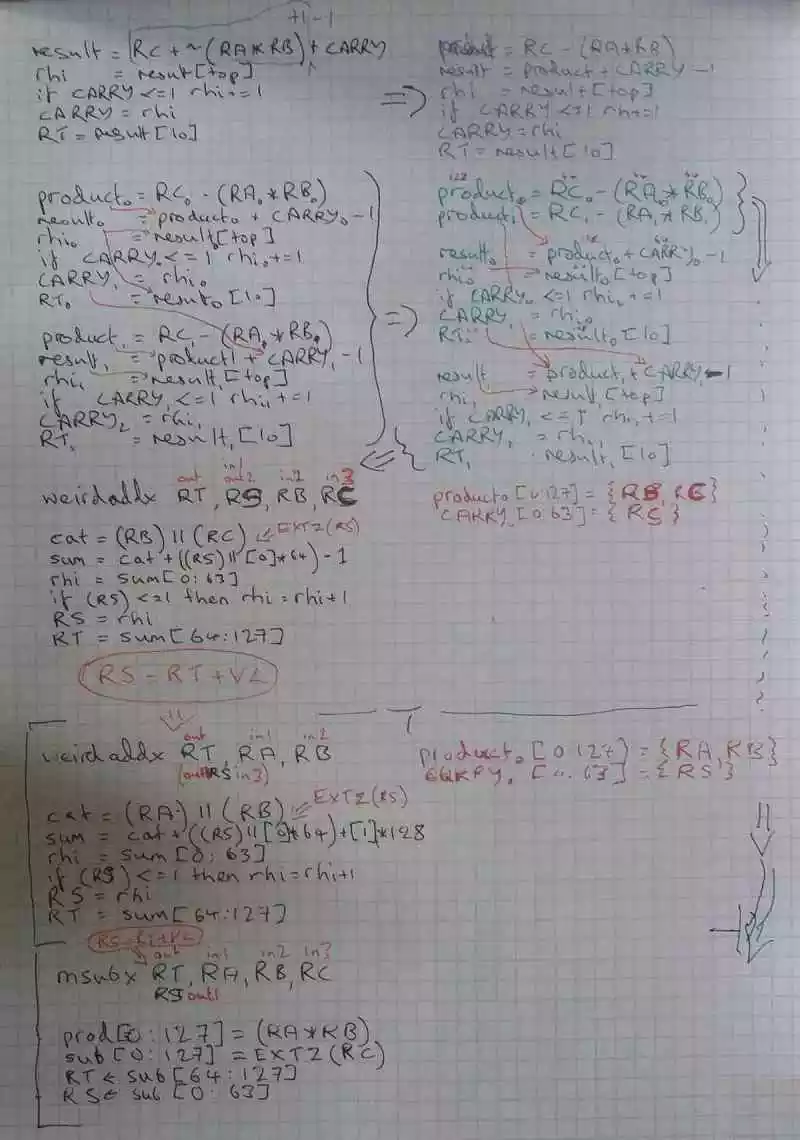 +1-1
result = RC + ~(RA*RB) + CARRY
rhi = result[top]
if CARRY <= 1 rhi += 1
CARRY = rhi
RT = result[lo]
=>
= RC - (RA*RB)
result = product + CARRY - 1
rhi = result[top]
if CARRY <= 1 rhi += 1
CARRY = rhi
RT = result[lo]
product0 = RC0 - (RA0 * RB0)
result0 = product0 + CARRY0 - 1
rhi0 = result0[top]
if CARRY0 <= 1 rhi0 += 1
CARRY1 = rhi0
RT0 = result0[lo]
product1 = RC1 - (RA1 * RB1)
result1 = product1 + CARRY1 - 1
rhi1 = result1[top]
if CARRY1 <= 1 rhi1 += 1
CARRY2 = rhi1
RT1 = result1[lo]
=>
128 64 64 64
product0 = RC0 - (RA0 * RB0)
product1 = RC1 - (RA1 * RB1)
result0 = product0 + CARRY0 - 1
rhi0 = result0[top]
if CARRY0 <= 1 rhi0 += 1
CARRY1 = rhi0
RT0 = result0[lo]
result = product1 + CARRY1 - 1
rhi1 = result1[top]
if CARRY1 <= 1 rhi1 += 1
CARRY1 = rhi1
RT1 result1[lo]
out in1 out2 in2 in3
weirdaddx RT, RS, RB, RC
product0[0:127] = {RB, RC}
CARRY [0:63] = {RS}
cat = (RB) || (RC) EXTZ(RS)
sum = cat + ((RS) || [0]*64) - 1
rhi = sum[0:63]
if (RS) <= 1 then rhi = rhi+1
RS = rhi
RT = sum[64:127]
RS = RT + VL
out in1 in2
weirdaddx RT, RA, RB
(out RS in3)
product0[0:127] = {RA, RB}
CARRY1 [0:63] = {RS}
cat = (RA) || (RB) EXTZ(RS)
sum = cat + ((RS) || [0]*64) + [1]*128
rhi = sum[0:63]
if (RS) <= 1 then rhi = rhi+1
RS = rhi
RT = sum[64:127]
RS = RT + VL
out in1 in2 in3
msubx RT, RA, RB, RC
RS out1
prod[0:127] = (RA*RB)
sub[0:127] = EXTZ(RC)
RT ← sub[64:127]
RS ← sub[0:63]